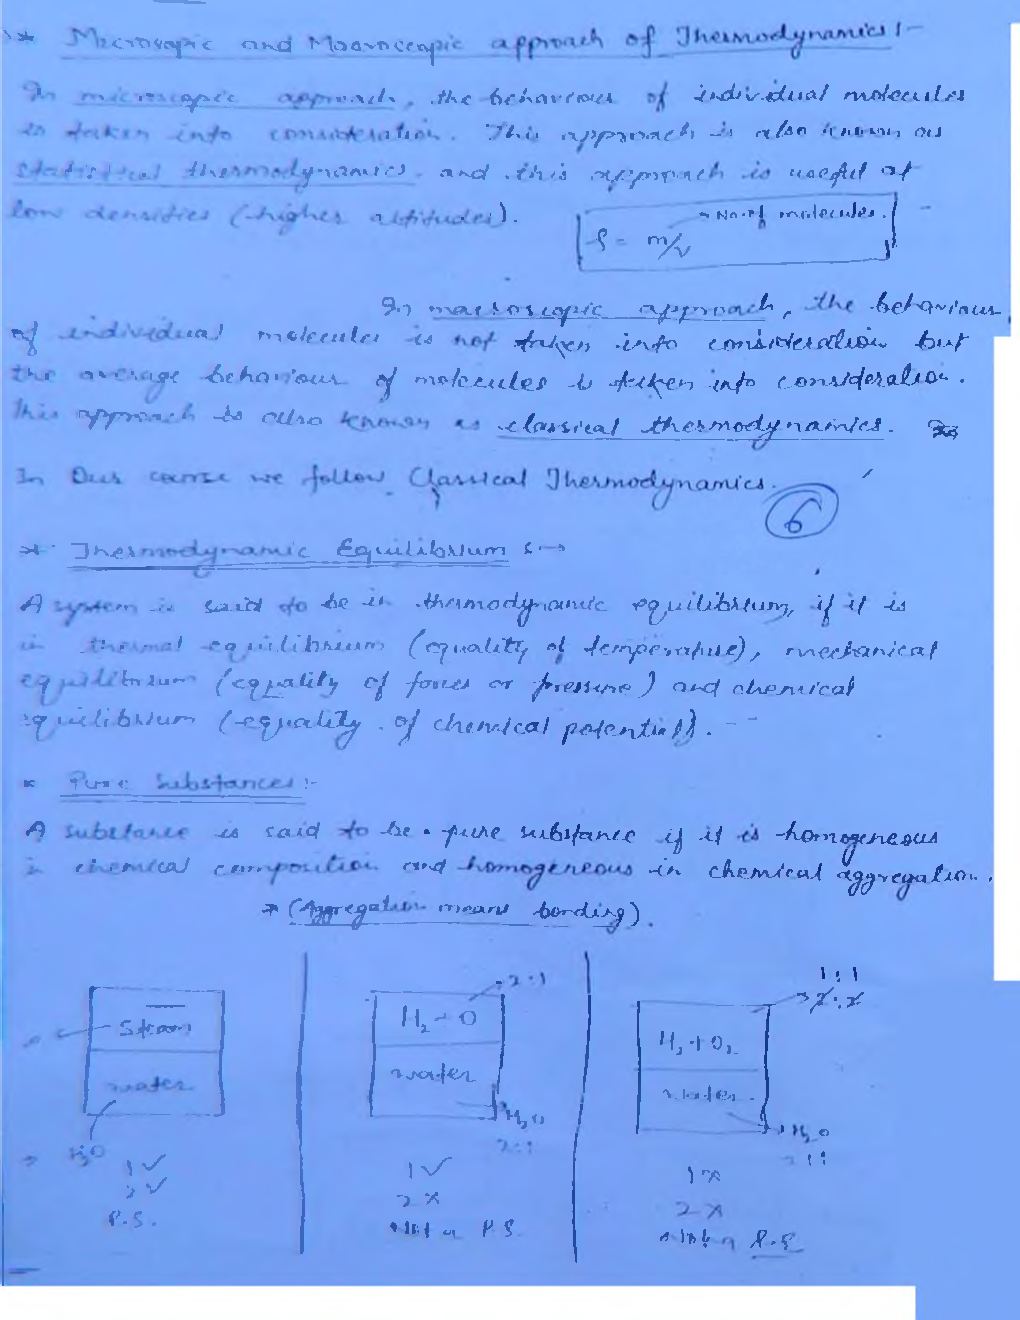 * Microscopic and Macroscopic approach of Thermodynamics :-
In microscopic approach, the behaviour of individual molecules
is taken into consideration. This approach is also known as
statistical thermodynamics. and this approach is useful at
low densities (higher altitudes).
→ No. of molecules.
ρ = m/v
In macroscopic approach, the behaviour
of individual molecules is not taken into consideration but
the average behaviour of molecules is taken into consideration.
This approach is also known as classical thermodynamics.
In Our course we follow Classical Thermodynamics.
6
* Thermodynamic Equilibrium :→
A system is said to be in thermodynamic equilibrium, if it is
in thermal equilibrium (equality of temperature), mechanical
equilibrium (equality of forces or pressure) and chemical
equilibrium (equality of chemical potential).
* Pure Substances :-
A substance is said to be a pure substance if it is homogeneous
in chemical composition and homogeneous in chemical aggregation.
→ (Aggregation means bonding).
Steam
water
H₂O
1 ✓
2 ✓
P.S.
→ 2:1
H₂ + O
water
H₂O
2:1
1 ✓
2 ×
Not a P.S.
1:1
H₂ + O₂
water
H₂O
2:1
1 ×
2 ×
Not a P.S